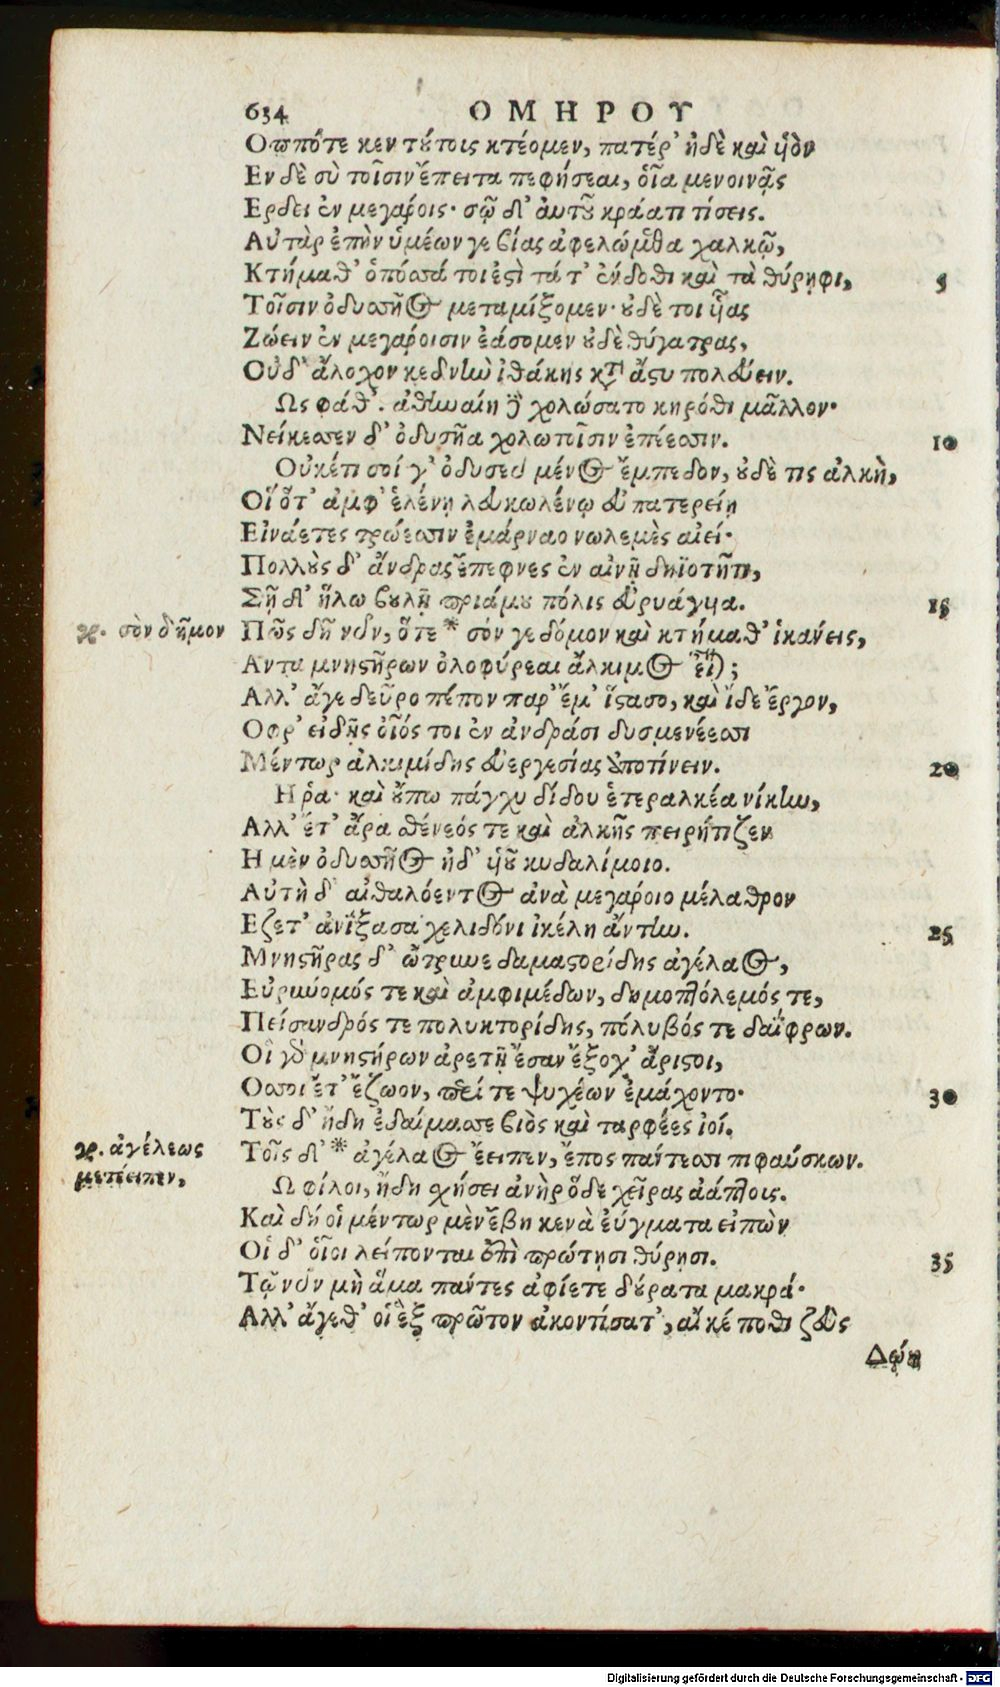 634 ΟΜΗΡΟΥ
Οππότε κεν τούτοις κτέομεν, πατέρ' ἠδὲ καὶ ὑὸν
Εν δὲ σὺ τοῖσιν ἔπειτα πεφήσεαι, οἷα μενοινᾷς
Ερδειν ἐν μεγάροις· σῷ δ' αὐτοῦ κράατι τίσεις.
Αὐτὰρ ἐπὴν ὑμέων γε βίας ἀφελώμεθα χαλκῷ,
Κτήμαθ' ὁπόσσά τοι ἐστὶ τά τ' ἔνδοθι καὶ τὰ θύρηφι, 5
Τοῖσιν ὀδυσσῆος μεταμίξομεν· οὐδὲ τοι ὑῆας
Ζώειν ἐν μεγάροισιν ἐάσομεν οὐδὲ θύγατρας,
Οὐδ' ἄλοχον κεδνὴν ἰθάκης κατὰ ἄστυ πολεύειν.
Ως φάθ'. ἀθηναίη δὲ χολώσατο κηρόθι μᾶλλον·
Νείκεσσεν δ' ὀδυσῆα χολωτοῖσιν ἐπέεσσιν. 10
Οὐκέτι σοί γ' ὀδυσεῦ μένος ἔμπεδον, οὐδὲ τις ἀλκὴ,
Οἵ ὅτ' ἀμφ' ἑλένῃ λευκωλένῳ εὐπατερείῃ
Εἰνάετες τρώεσσιν ἐμάρναο νωλεμὲς αἰεί·
Πολλοὺς δ' ἄνδρας ἔπεφνες ἐν αἰνῇ δηϊοτῆτι,
Σῇ δ' ἥλω βουλῇ πριάμου πόλις εὐρυάγυια. 15
γρ. σὸν δῆμον Πῶς δὴ νῦν, ὅτε * σόν γε δόμον καὶ κτήμαθ' ἱκάνεις,
Αντα μνηστήρων ὀλοφύρεαι ἄλκιμος εἶναι;
Αλλ' ἄγε δεῦρο πέπον παρ' ἔμ' ἵστασο, καὶ ἴδε ἔργον,
Οφρ' εἰδῇς οἷός τοι ἐν ἀνδράσι δυσμενέεσσι
Μέντωρ ἀλκιμίδης εὐεργεσίας ἀποτίνειν. 20
Η ῥα· καὶ οὔπω πάγχυ δίδου ἑτεραλκέα νίκην,
Αλλ' ἔτ' ἄρα σθένεός τε καὶ ἀλκῆς πειρήτιζεν
Η μὲν ὀδυσσῆος ἠδ' ὑοῦ κυδαλίμοιο.
Αὐτὴ δ' αἰθαλόεντος ἀνὰ μεγάροιο μέλαθρον
Εζετ' ἀνΐξασα χελιδόνι ἰκέλη ἄντην. 25
Μνηστῆρας δ' ὤτρυνε δαμαστορίδης ἀγέλαος,
Εὐρυνομός τε καὶ ἀμφιμέδων, δημοπτόλεμός τε,
Πείσανδρός τε πολυκτορίδης, πόλυβός τε δαΐφρων.
Οἱ γὰρ μνηστήρων ἀρετῇ ἔσαν ἔξοχ' ἄριστοι,
Οσσοι ἔτ' ἔζωον, περί τε ψυχέων ἐμάχοντο· 30
Τοὺς δ' ἤδη ἐδάμασσε βιὸς καὶ ταρφέες ἰοί.
γρ. ἀγέλεως Τοῖς δ' * ἀγέλαος ἔειπεν, ἔπος πάντεσσι πιφαύσκων.
μετέειπεν, Ω φίλοι, ἤδη σχήσει ἀνὴρ ὅδε χεῖρας ἀάπτοις.
Καὶ δή οἱ μέντωρ μὲν ἔβη κενὰ εὔγματα εἰπὼν
Οἱ δ' οἶοι λείπονται ἐπὶ πρώτῃσι θύρῃσι. 35
Τῷ νῦν μὴ ἅμα πάντες ἀφίετε δούρατα μακρά·
Αλλ' ἄγεθ' οἱ ἓξ πρῶτον ἀκοντίσατ', αἴ κέ ποθι ζεὺς
Δώῃ
Digitalisierung gefördert durch die Deutsche Forschungsgemeinschaft - DFG